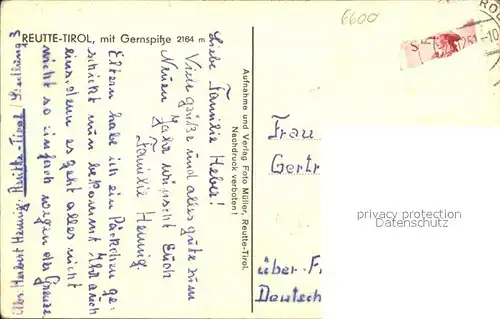 REUTTE-TIROL, mit Gernspitze 2164 m
6600
Liebe Familie Heber!
Viele Grüße und alles gute zum
Neuen Jahr wünscht Euch
Familie Hennig
Eltern habe ich ein Päckchen ge-
schickt nun bekommt Ihr auch
eins, denn es geht alles nicht
nicht so einfach wegen der Grenze
Abs: Herbert Hennig, Reutte-Tirol
Aufnahme und Verlag Foto Müller, Reutte-Tirol.
Nachdruck verboten!
Frau
Gertr
privacy protection
Datenschutz
über F
Deutsch